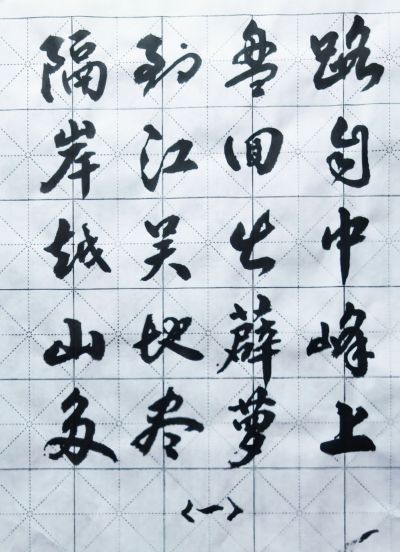 路自中峰上
盘回出薜萝
到江吴地尽
隔岸越山多
<一>